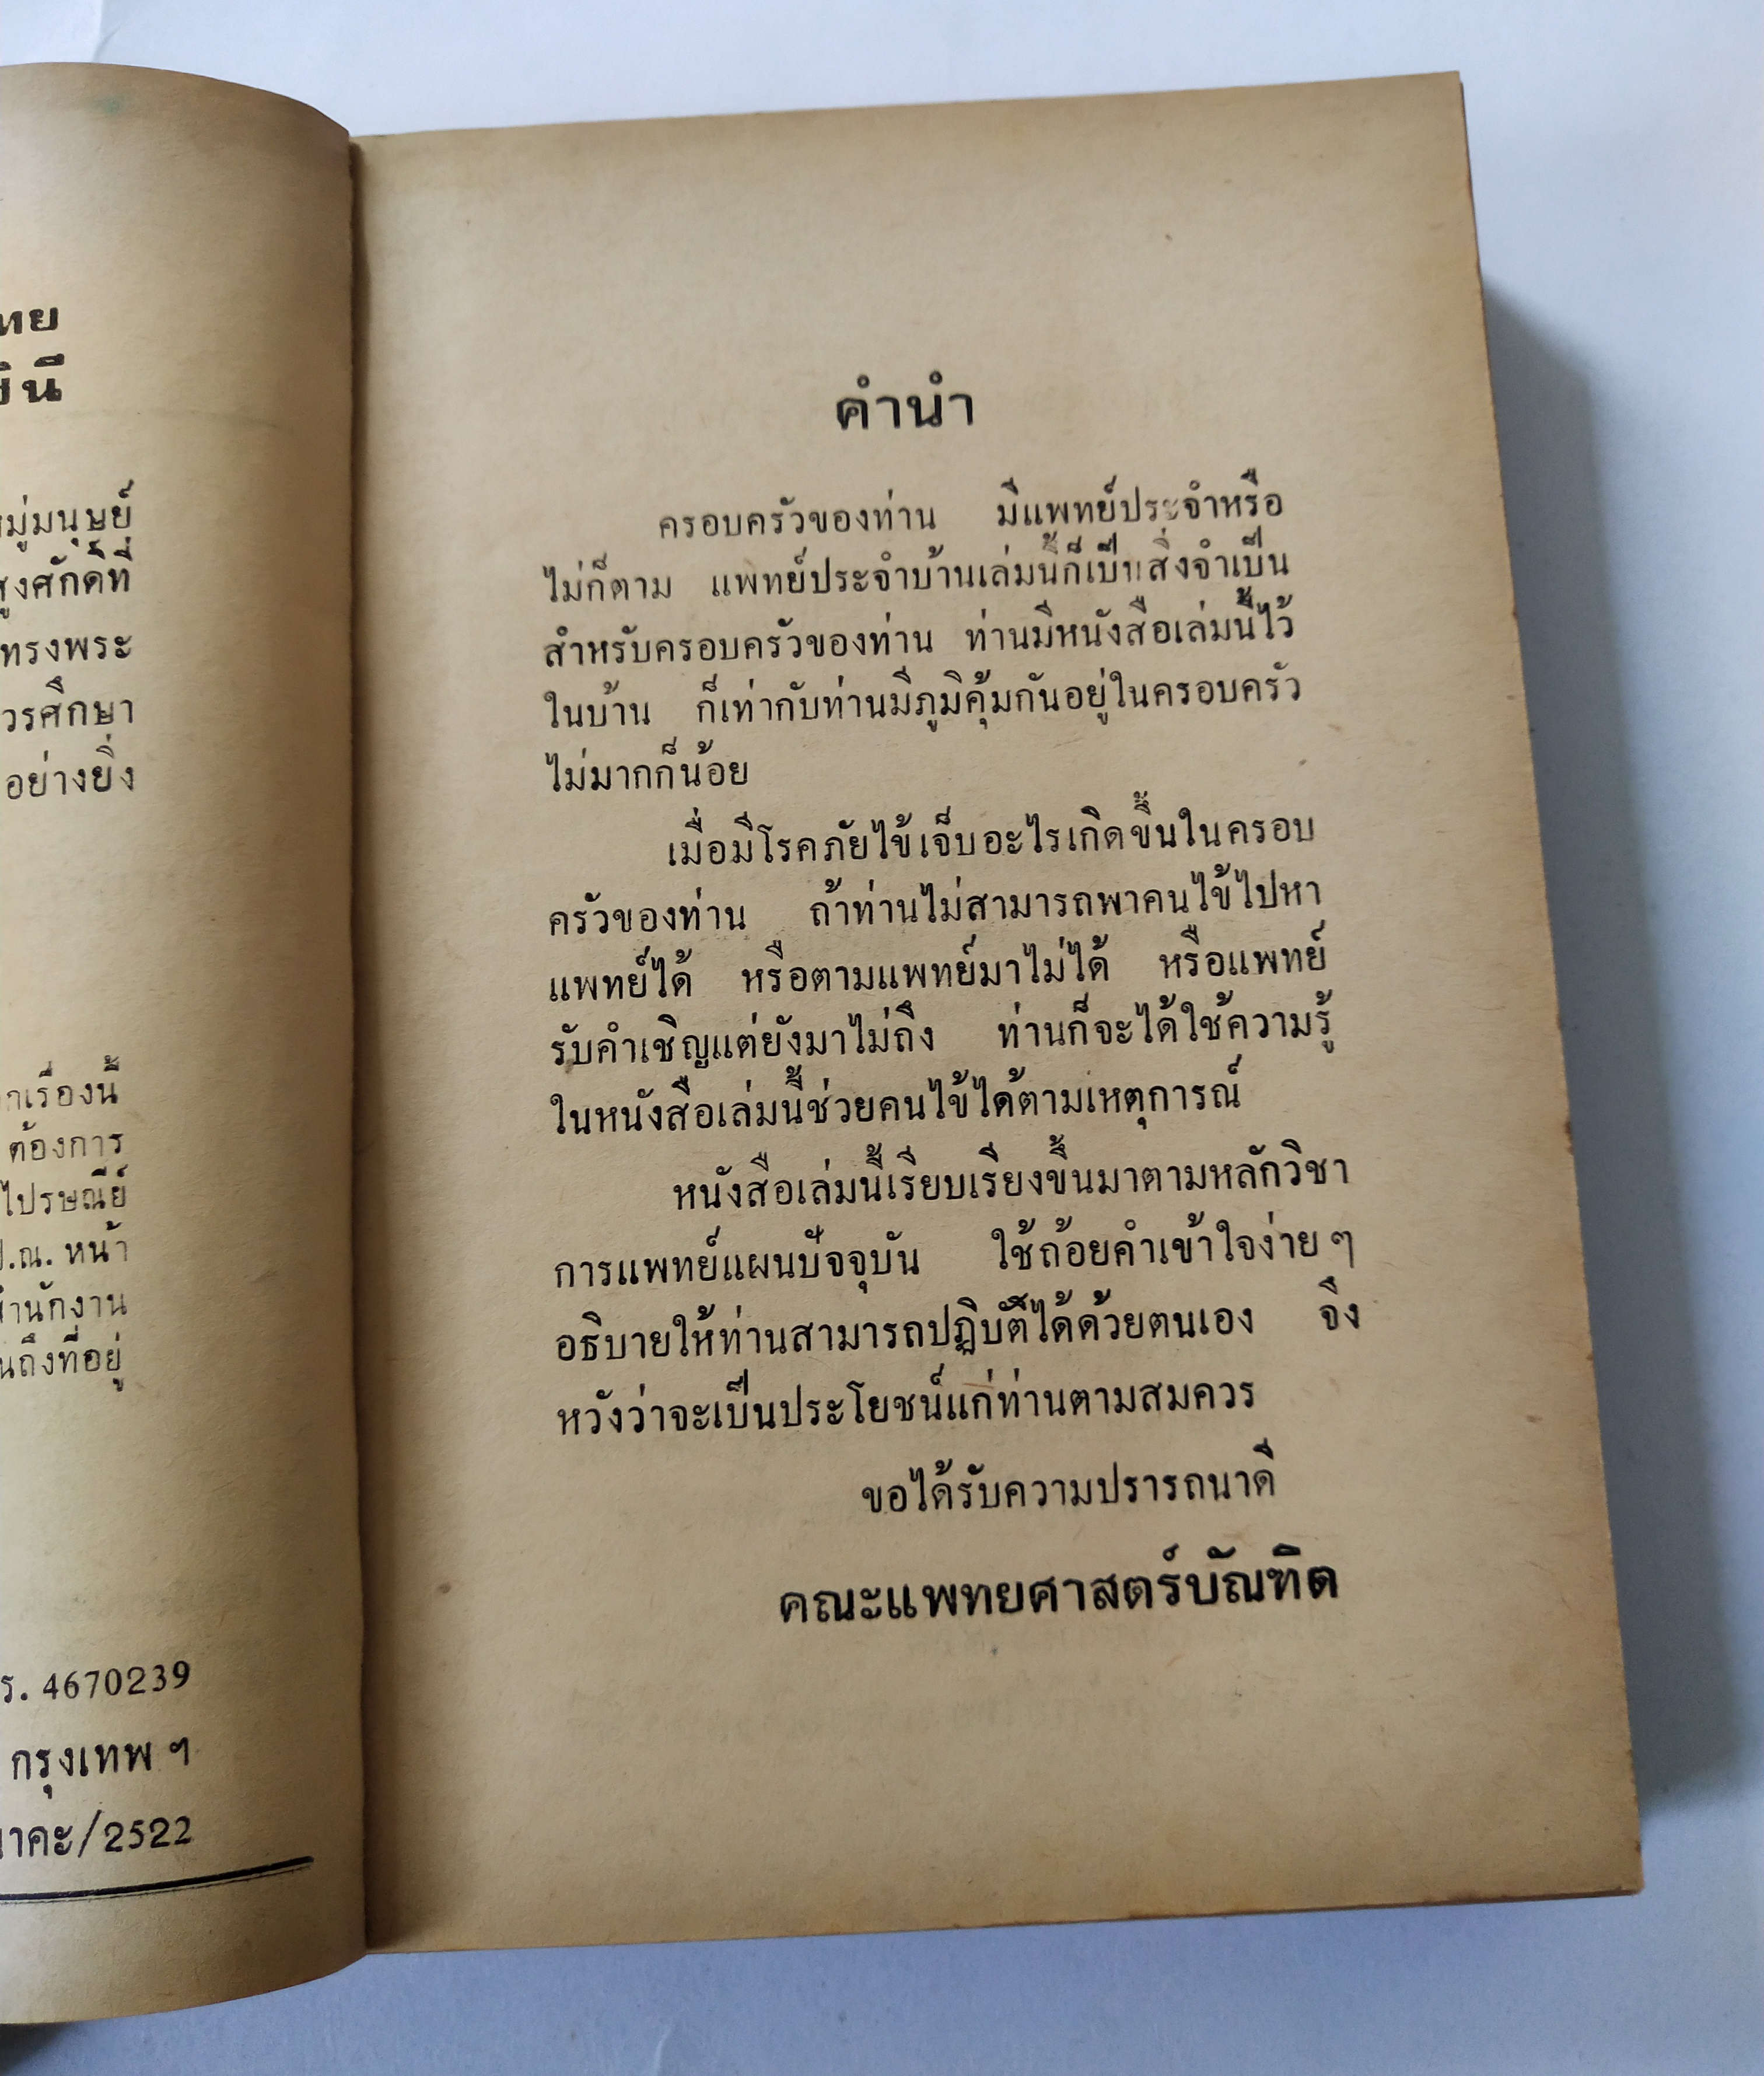 ทย
นี
หมู่มนุษย์
สูงศักดิ์ที่
ทรงพระ
ควรศึกษา
อย่างยิ่ง
กเรื่องนี้
ต้องการ
ไปรษณีย์
ป.ณ. หน้า
สำนักงาน
นถึงที่อยู่
ร. 4670239
กรุงเทพ ฯ
าคะ/2522
คำนำ
ครอบครัวของท่าน มีแพทย์ประจำหรือ
ไม่ก็ตาม แพทย์ประจำบ้านเล่มนี้ก็เป็นสิ่งจำเป็น
สำหรับครอบครัวของท่าน ท่านมีหนังสือเล่มนี้ไว้
ในบ้าน ก็เท่ากับท่านมีภูมิคุ้มกันอยู่ในครอบครัว
ไม่มากก็น้อย
เมื่อมีโรคภัยไข้เจ็บอะไรเกิดขึ้นในครอบ
ครัวของท่าน ถ้าท่านไม่สามารถพาคนไข้ไปหา
แพทย์ได้ หรือตามแพทย์มาไม่ได้ หรือแพทย์
รับคำเชิญแต่ยังมาไม่ถึง ท่านก็จะได้ใช้ความรู้
ในหนังสือเล่มนี้ช่วยคนไข้ได้ตามเหตุการณ์
หนังสือเล่มนี้เรียบเรียงขึ้นมาตามหลักวิชา
การแพทย์แผนปัจจุบัน ใช้ถ้อยคำเข้าใจง่าย ๆ
อธิบายให้ท่านสามารถปฏิบัติได้ด้วยตนเอง จึง
หวังว่าจะเป็นประโยชน์แก่ท่านตามสมควร
ขอได้รับความปรารถนาดี
คณะแพทยศาสตร์บัณฑิต